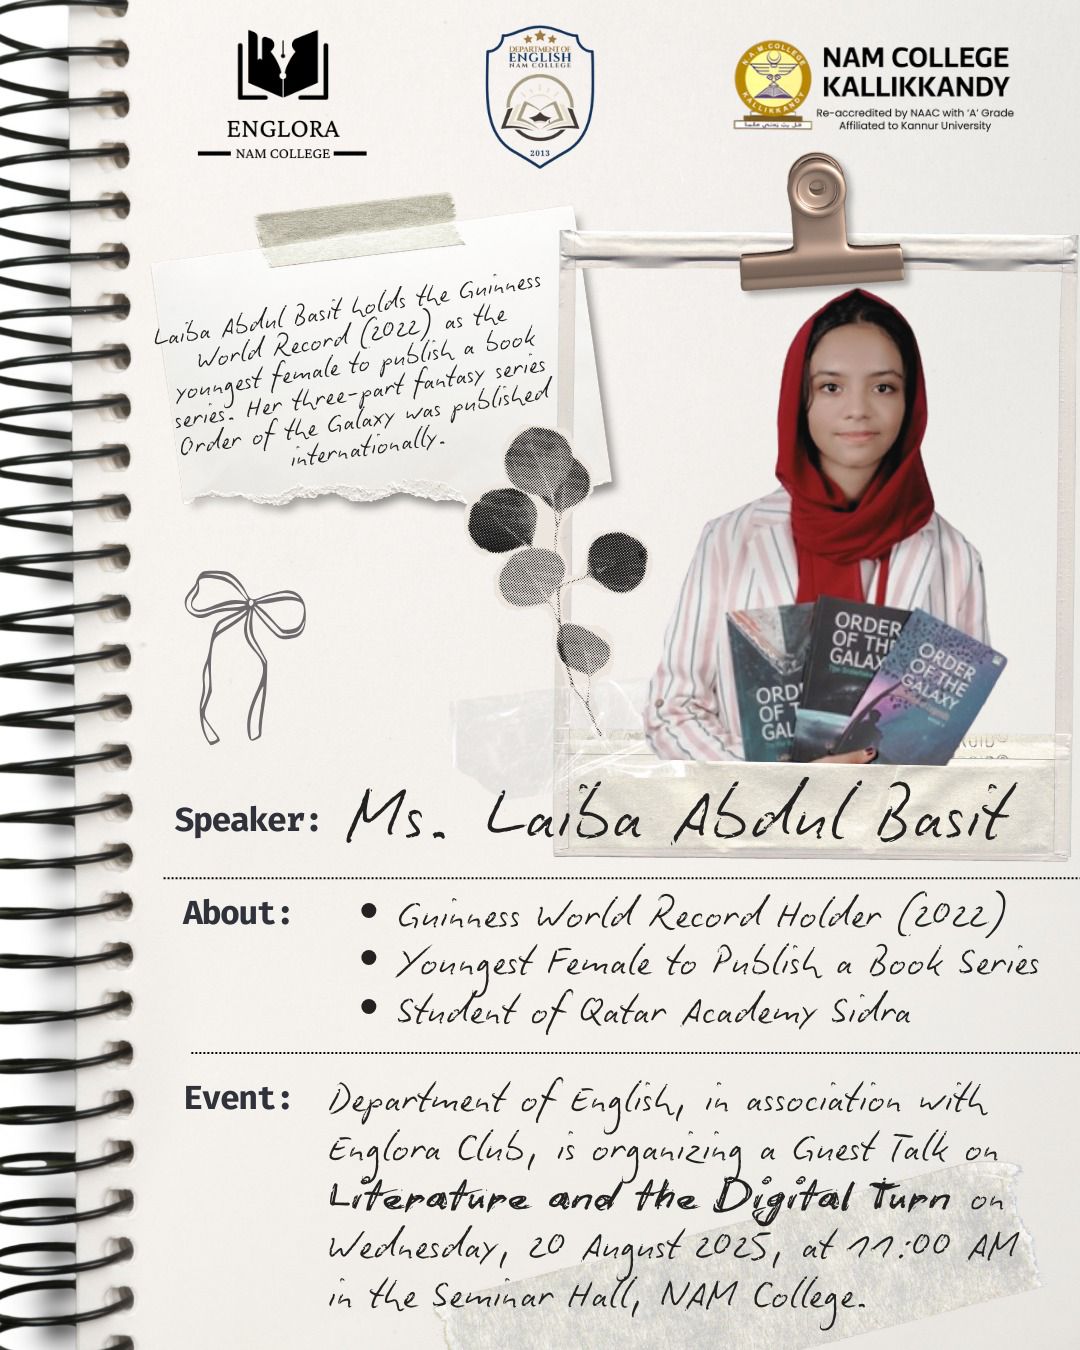 ENGLORA
NAM COLLEGE
DEPARTMENT OF
ENGLISH
NAM COLLEGE
2013
N.A.M. COLLEGE
KALLIKKANDY
NAM COLLEGE
KALLIKKANDY
Re-accredited by NAAC with 'A' Grade
Affiliated to Kannur University
Laiba Abdul Basit holds the Guinness
World Record (2022) as the
youngest female to publish a book
series. Her three-part fantasy series
Order of the Galaxy was published
internationally.
ORDER
OF THE
GALAXY
ORDER
OF THE
GALAXY
ORD
OF T
GAL
Speaker: Ms. Laiba Abdul Basit
About:
• Guinness World Record Holder (2022)
• Youngest Female to Publish a Book Series
• Student of Qatar Academy Sidra
Event: Department of English, in association with
Englora Club, is organizing a Guest Talk on
Literature and the Digital Turn on
Wednesday, 20 August 2025, at 11:00 AM
in the Seminar Hall, NAM College.